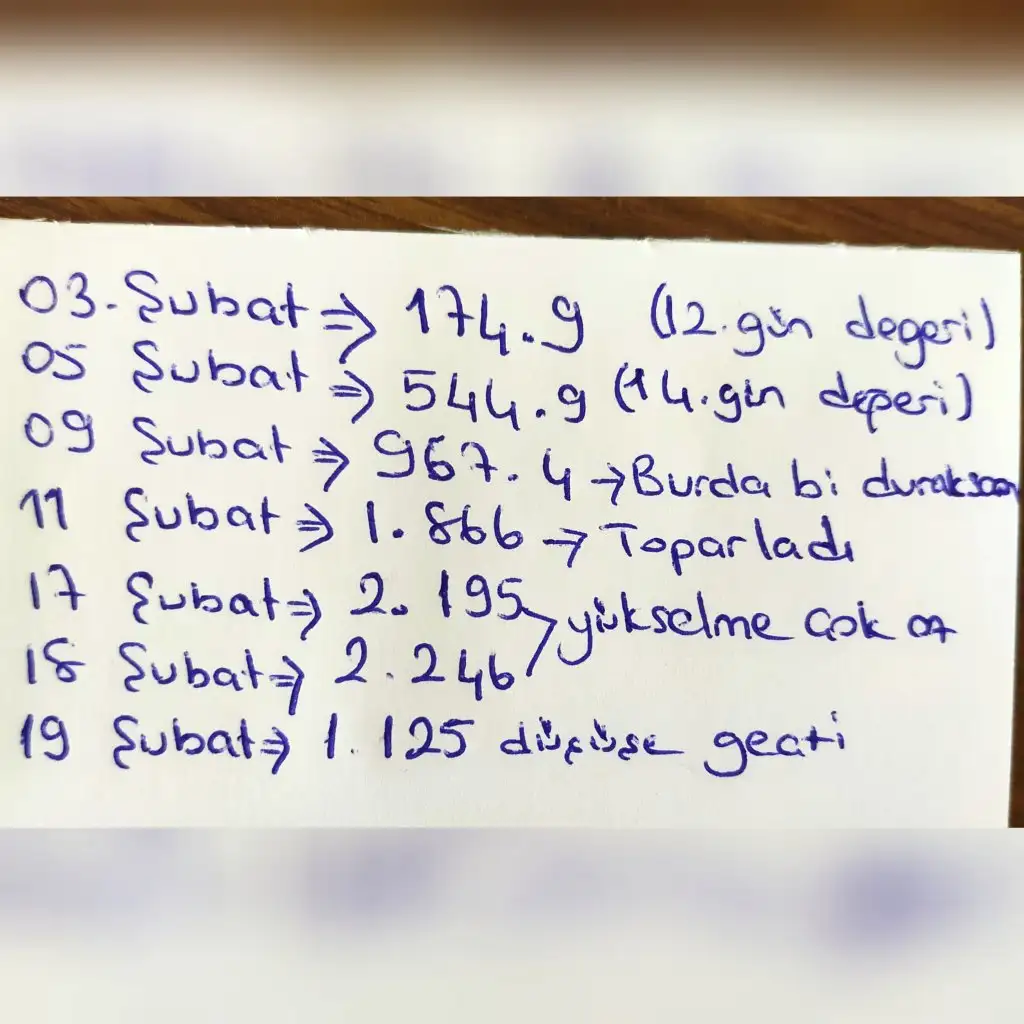 03. Şubat ⇒ 174.9 (12.gün degeri)
05 Şubat ⇒ 544.9 (14.gün deperi)
09 Şubat ⇒ 967.4 → Burda bi duraksam
11 Şubat ⇒ 1.866 → Toparladı
17 Şubat ⇒ 2.195
yükselme çok az
18 Şubat ⇒ 2.246
19 Şubat ⇒ 1.125 düşüşe geçti